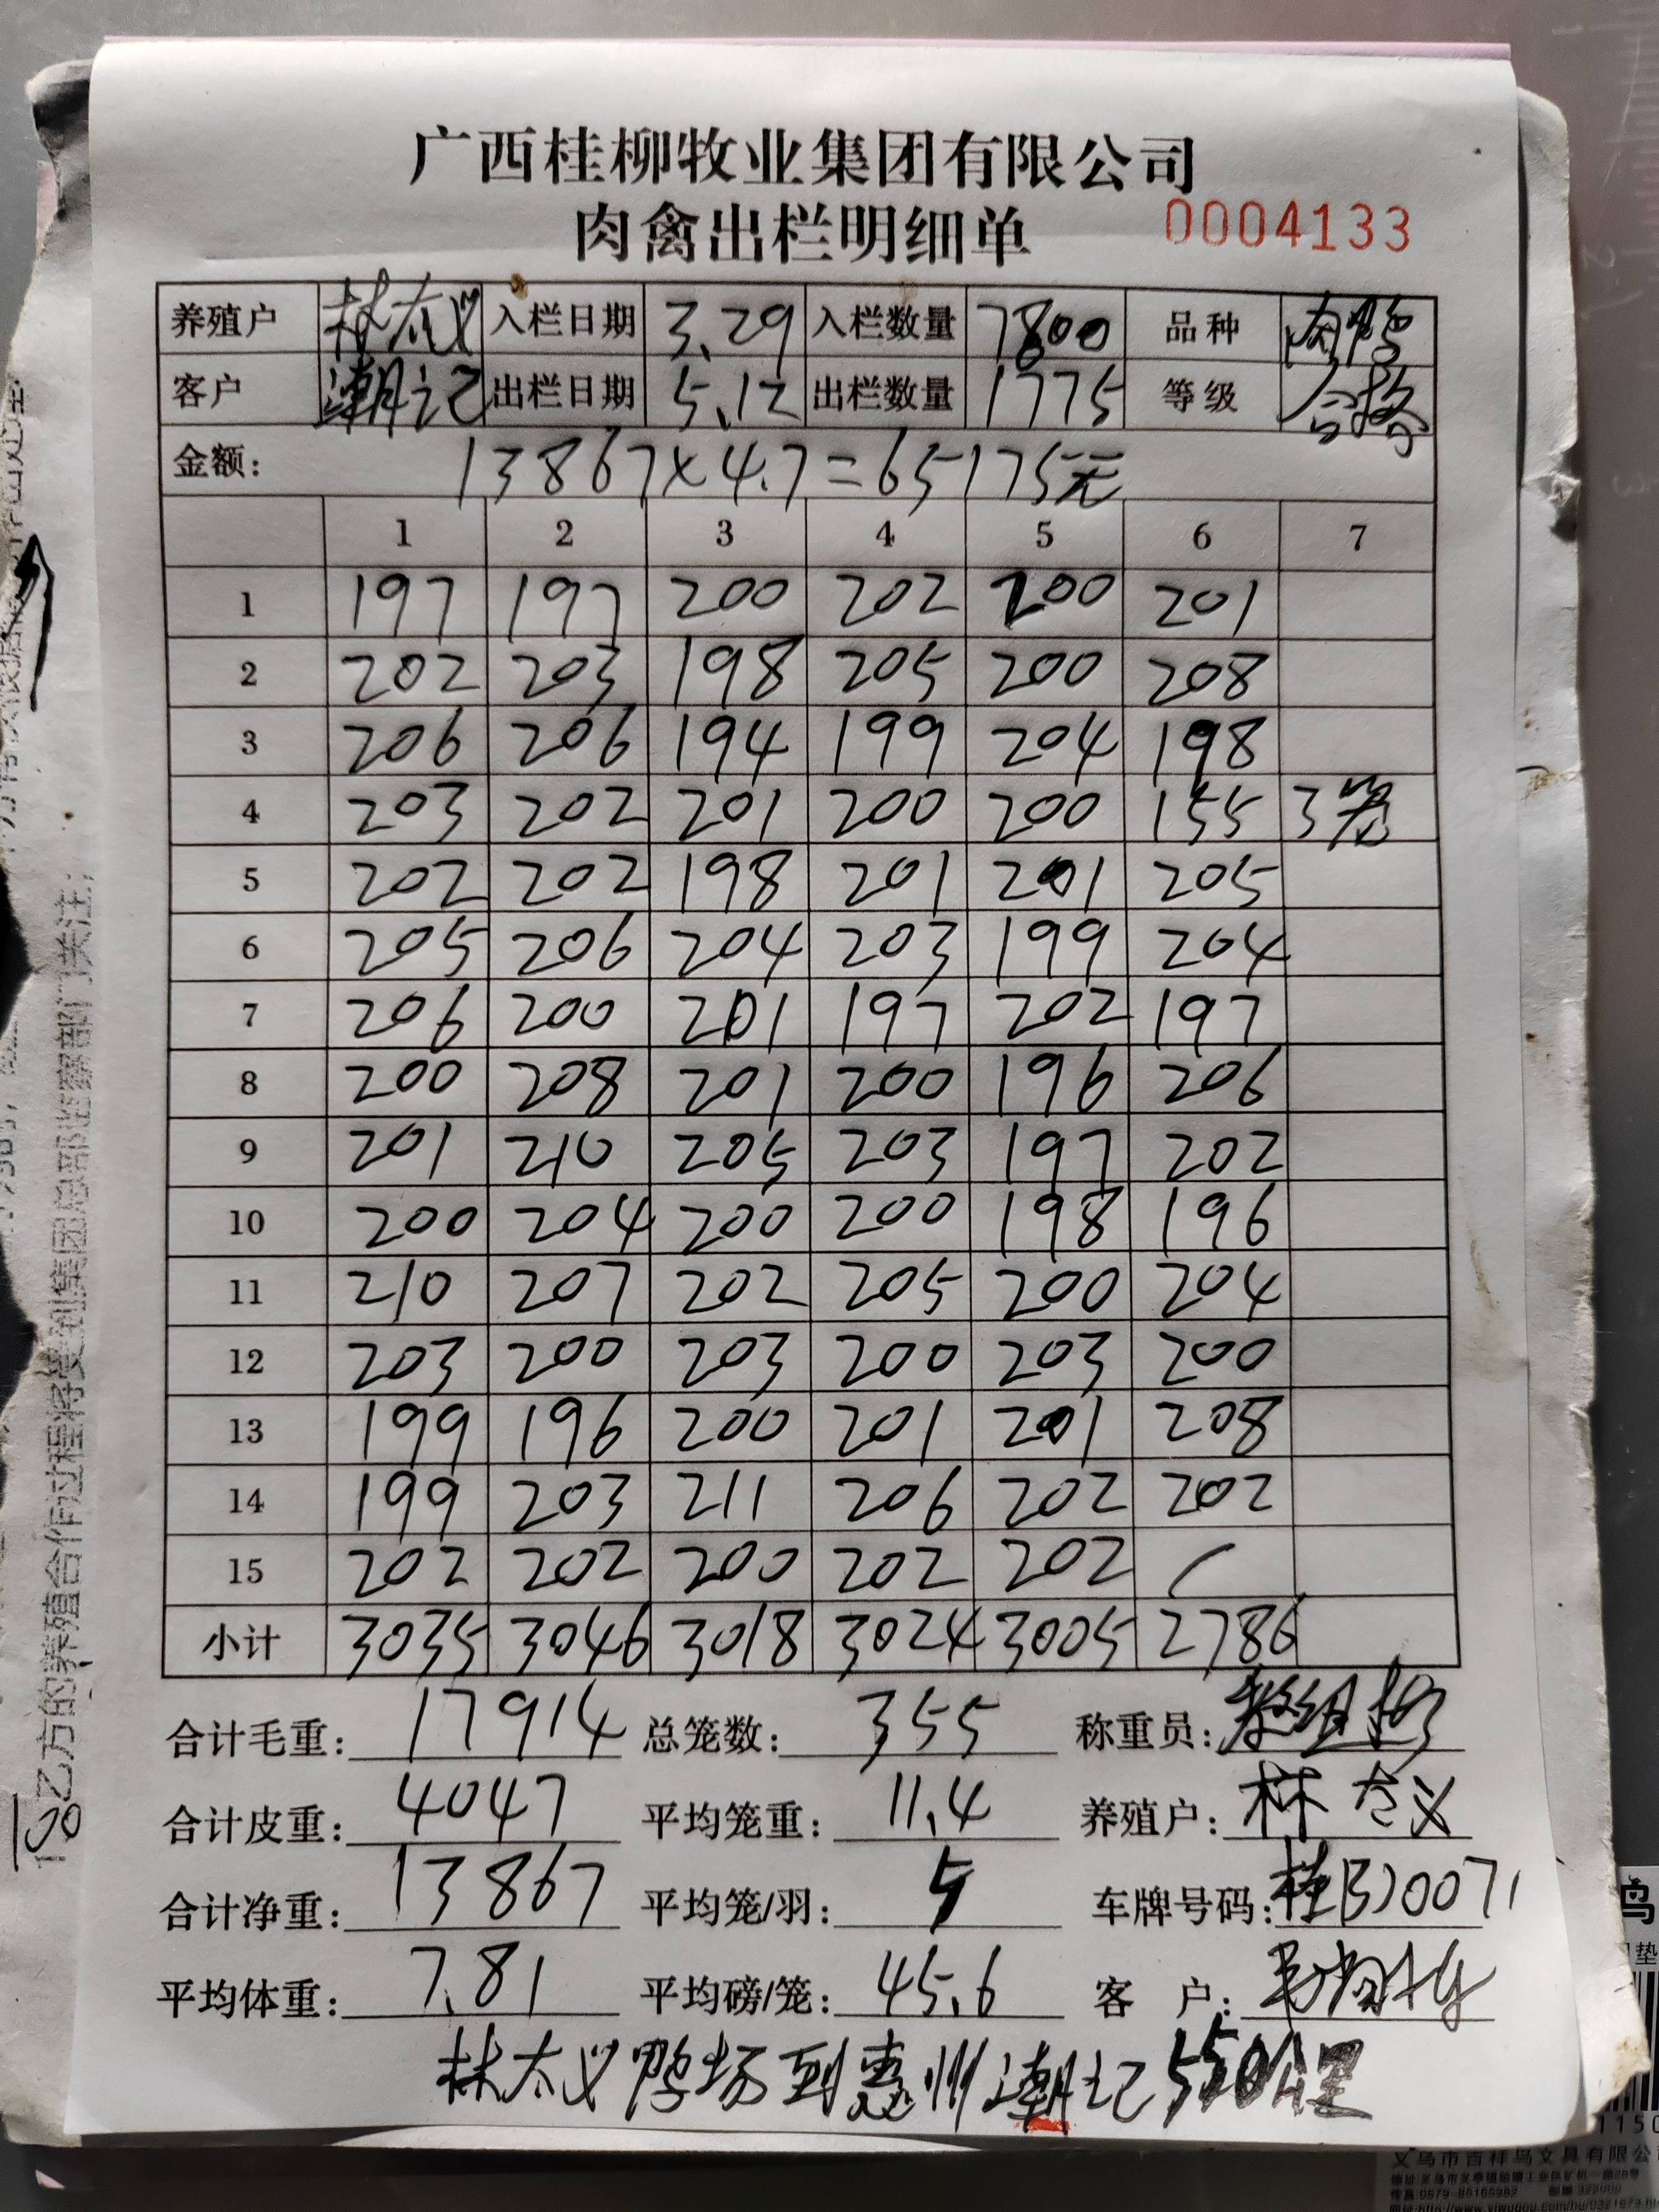 广西桂柳牧业集团有限公司
肉禽出栏明细单 0004133
养殖户 林太义 入栏日期 3.29 入栏数量 7800 品种 肉鸭
客户 潮记 出栏日期 5.12 出栏数量 1775 等级 合格
金额: 13867×4.7=65175元
1 2 3 4 5 6 7
1 197 197 200 202 200 201
2 202 203 198 205 200 208
3 206 206 194 199 204 198
4 203 202 201 200 200 155 3笼
5 202 202 198 201 201 205
6 205 206 204 203 199 204
7 206 200 201 197 202 197
8 200 208 201 200 196 206
9 201 210 205 203 197 202
10 200 204 200 200 198 196
11 210 207 202 205 200 204
12 203 200 203 200 203 200
13 199 196 200 201 201 208
14 199 203 211 206 202 202
15 202 202 200 202 202 /
小计 3035 3046 3018 3024 3005 2786
合计毛重: 17914 总笼数: 355 称重员:
合计皮重: 4047 平均笼重: 11.4 养殖户: 林太义
合计净重: 13867 平均笼/羽: 5 车牌号码:
平均体重: 7.81 平均磅/笼: 45.6 客 户:
林太义鸭场到惠州潮记550公里
乙方的养殖合作过程将受到集团总部监察部门关注;
100
鸟
义乌市吉祥鸟文具有限公